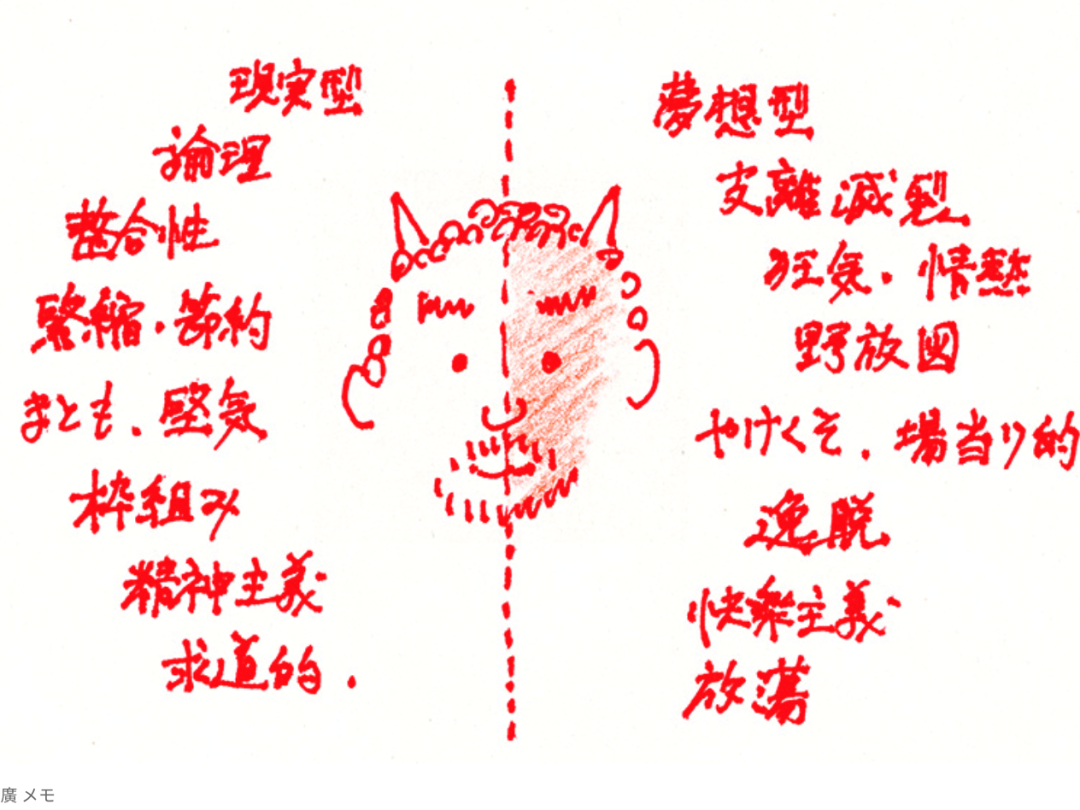 現実型
論理
整合性
緊縮・節約
まとも、堅気
枠組み
精神主義
求道的.
夢想型
支離滅裂
狂気・情熱
野放図
やけくそ、場当り的
逸脱
快楽主義
放蕩
廣 メモ